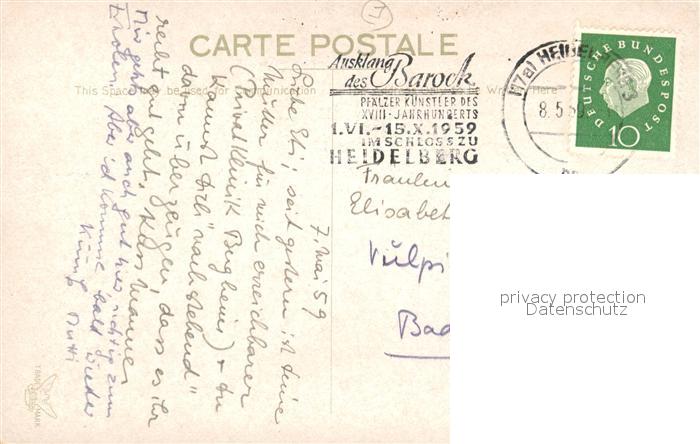 CARTE POSTALE
This Space may be used for Communication
Written Here
Ausklang
des Barock
PFÄLZER KÜNSTLER DES
XVIII · JAHRHUNDERTS
1.VI.-15.X.1959
IM SCHLOSS ZU
HEIDELBERG
(17a) HEIDELBERG
8.5.59
DEUTSCHE BUNDESPOST
10
7. Mai 59
Liebe Eli, seit gestern ist deine
Mutter für mich erreichbarer
(Privatklinik Bergheim) & Du
kannst Dich "nachstehend"
davon überzeugen, dass es ihr
recht gut geht. Karl Manner
Mir geht's aber auch gut hier, richtig zum
Erholen. Aber ich komme bald wieder.
Mutti
Fräulein
Elisabeth
Vulpi
Bad
TRADE MARK
privacy protection
Datenschutz